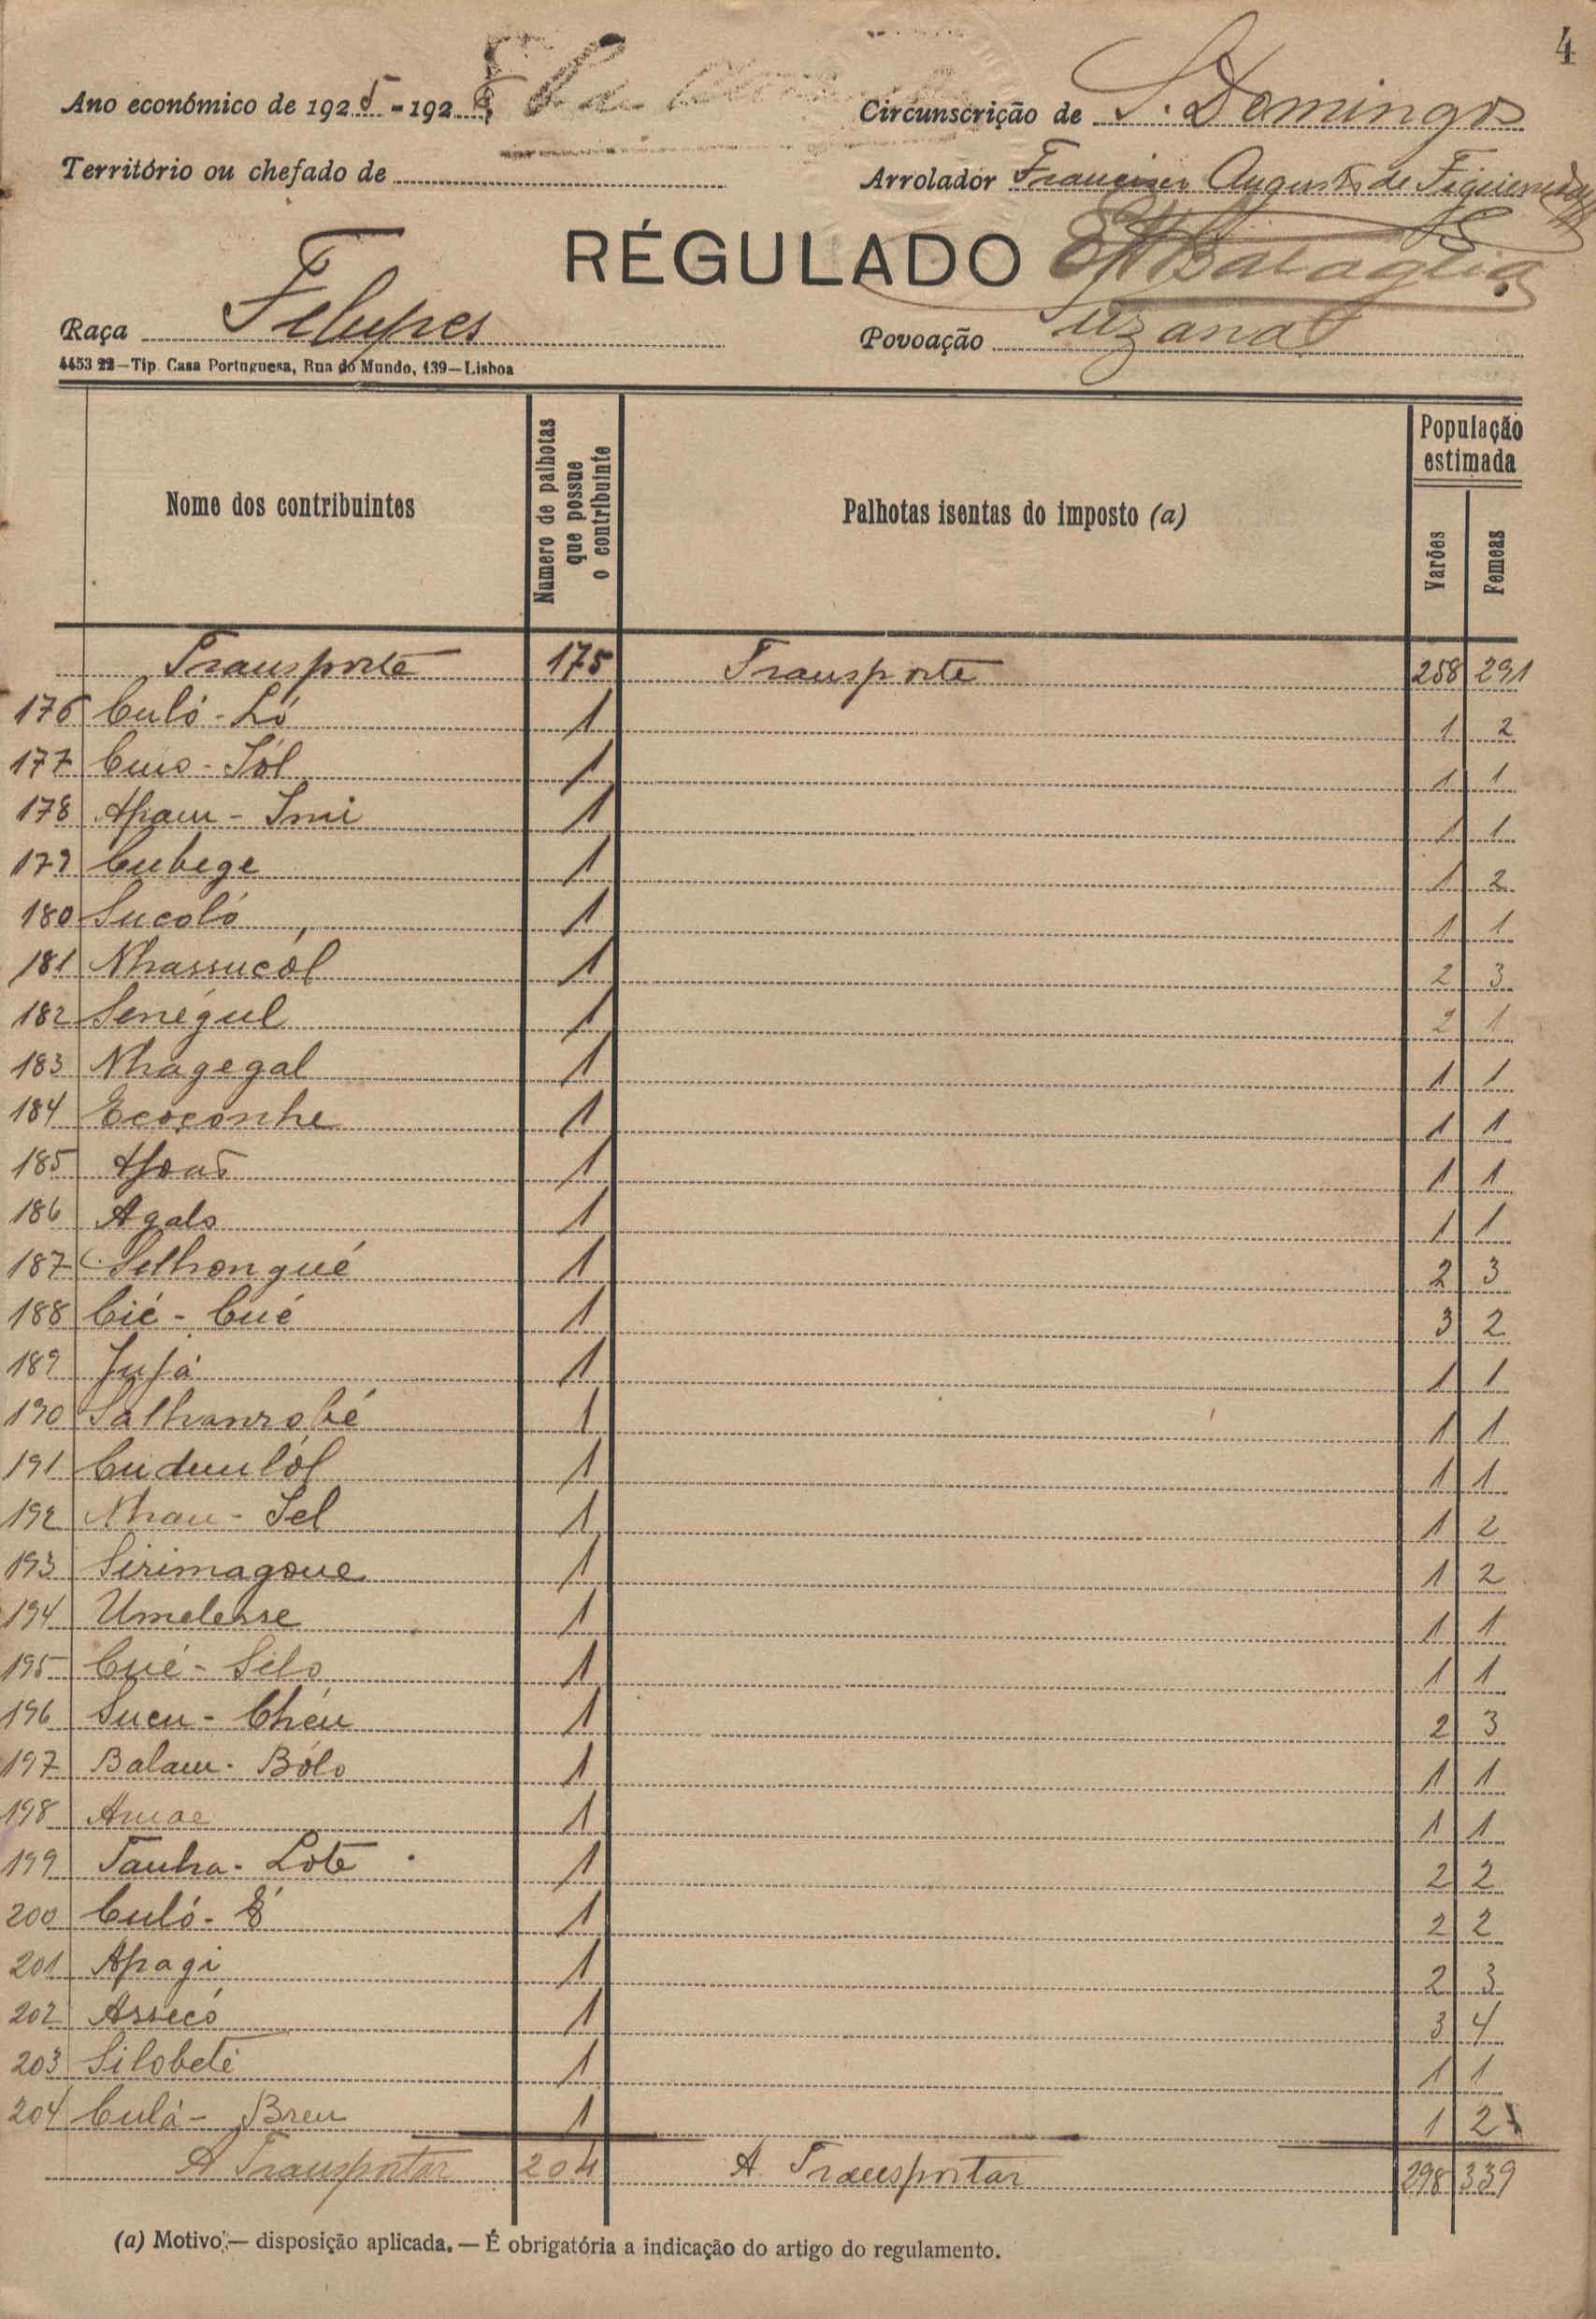 4
Ano económico de 1925-1926 Circunscrição de S. Domingos
Território ou chefado de Arrolador Francisco Augusto de Figueiredo
RÉGULADO
Raça Felupes Povoação Suzana
4453 22—Tip. Casa Portuguesa, Rua do Mundo, 139—Lisboa
Nome dos contribuintes
Numero de palhotas que possue o contribuinte
Palhotas isentas do imposto (a)
População estimada
Varões
Femeas
Transporte 175 Transporte 258 291
176 Culó-Ló 1 1 2
177 Cuio-Jól 1 1 1
178 Apam-Imi 1 1 1
179 Cubege 1 1 2
180 Sucoló 1 1 1
181 Nhassucól 1 2 3
182 Senégul 1 2 1
183 Nhagegal 1 1 1
184 Ecoçonhe 1 1 1
185 1 1 1
186 Agalo 1 1 1
187 Selhongué 1 2 3
188 Cié-Cué 1 3 2
189 Jujá 1 1 1
190 1 1 1
191 Cudumlól 1 1 1
192 Nhau-Sel 1 1 2
193 Sirimagoue 1 1 2
194 Umelesse 1 1 1
195 Cué-Silo 1 1 1
196 Sucu-Chéu 1 2 3
197 Balam-Bólo 1 1 1
198 1 1 1
199 Tanha-Lote 1 2 2
200 Culó-É 1 2 2
201 Apagi 1 2 3
202 Assecó 1 3 4
203 Silobeté 1 1 1
204 Culá-Breu 1 1 2
A Transportar 204 A Transportar 298 339
(a) Motivo — disposição aplicada. — É obrigatória a indicação do artigo do regulamento.